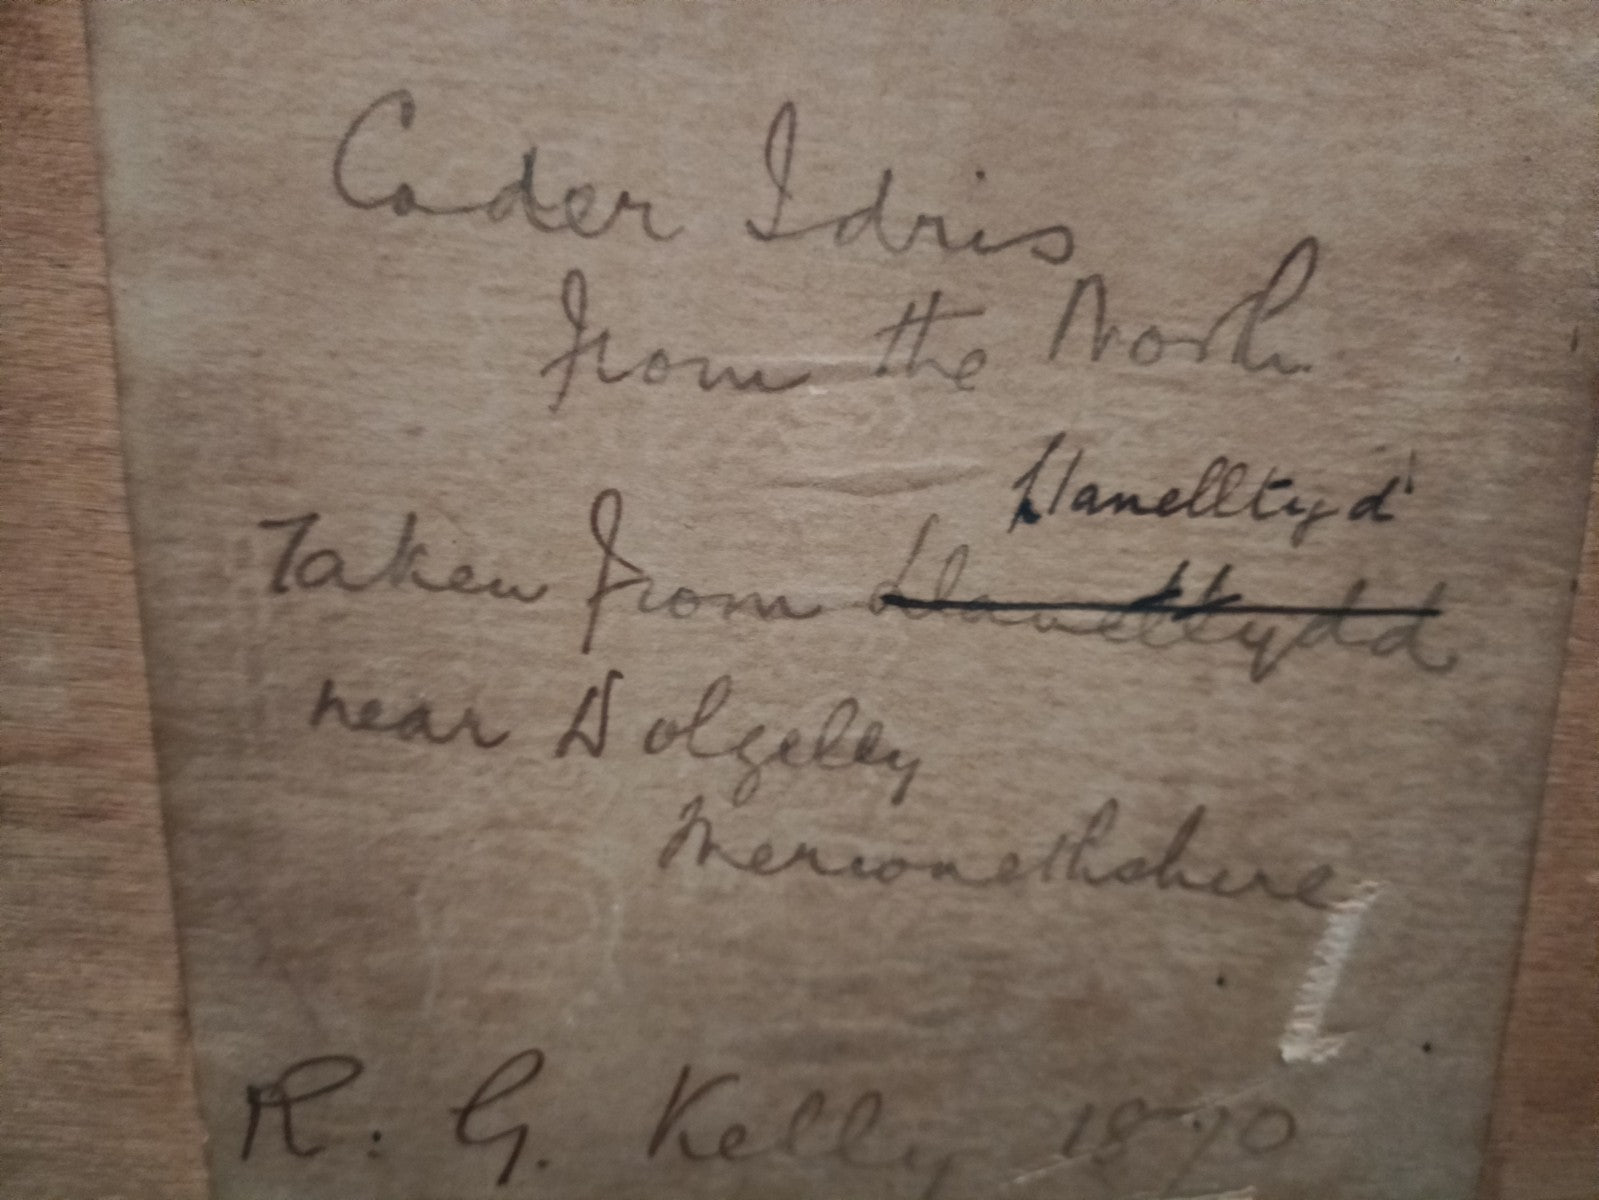 Cader Idris
from the North.
Llanelltyd
Taken from Llanelltydd
near Dolgelley
Merionethshire
R. G. Kelly 1890